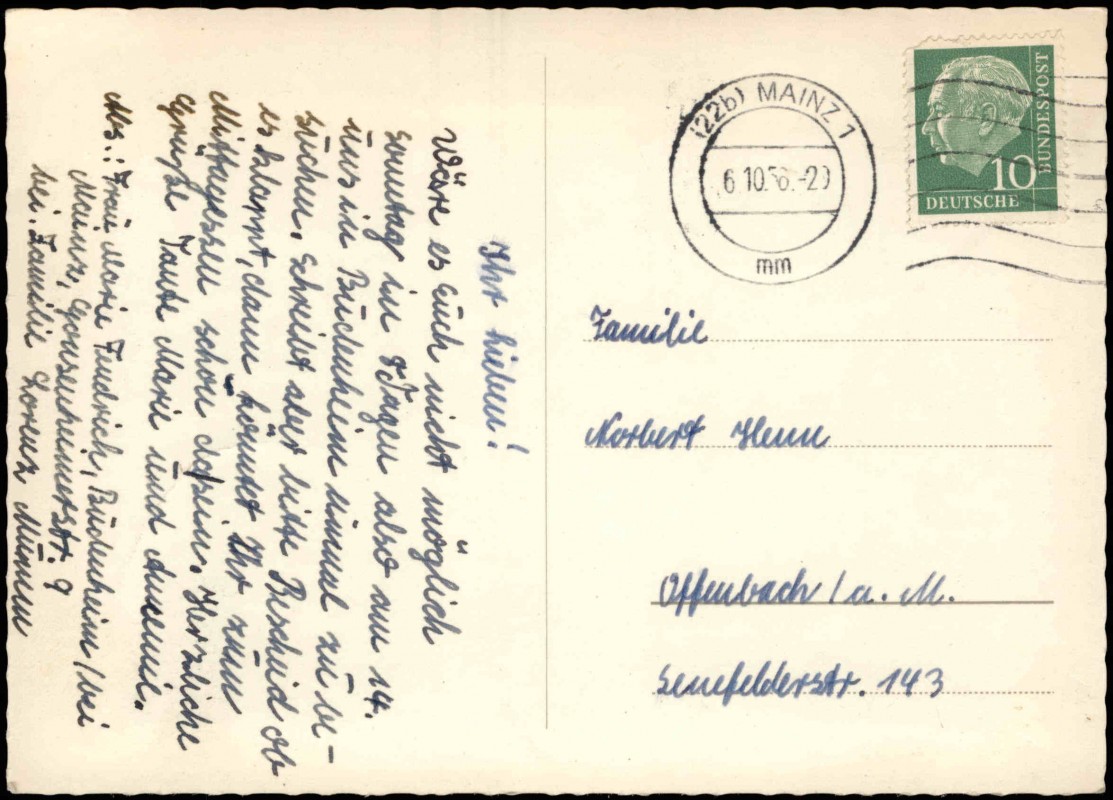 Ihr Lieben!
Wäre es Euch nicht möglich
Sonntag in 8 Tagen also am 14.
uns in Budenheim einmal zu be-
suchen. Schreibt aber bitte Bescheid ob
es klappt, dann könntet Ihr zum
Mittagessen schon da sein. Herzliche
Grüße Tante Marie und Annemie.
Abs.: Frau Marie Fendrich, Budenheim/bei
Mainz, Gonsenheimerstr. 9
bei Familie Lorenz
(22b) MAINZ 1
6.10.56.-20
mm
BUNDESPOST
10
DEUTSCHE
Familie
Norbert Henn
Offenbach/a. M.
Senefelderstr. 143